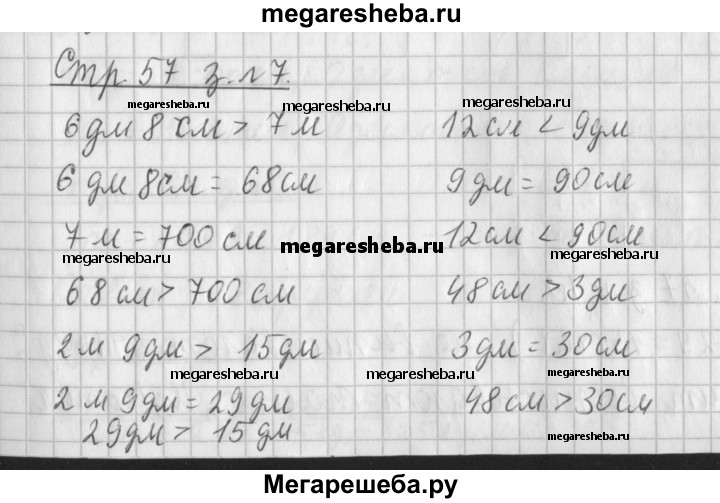 megaresheba.ru
Стр. 57 з. №7.
megaresheba.ru megaresheba.ru megaresheba.ru
6 дм 8 см > 7 м
12 см < 9 дм
6 дм 8 см = 68 см
9 дм = 90 см
7 м = 700 см
megaresheba.ru
12 см < 90 см
megaresheba.ru megaresheba.ru
68 см > 700 см
48 см > 3 дм
2 м 9 дм > 15 дм
3 дм = 30 см
megaresheba.ru megaresheba.ru megaresheba.ru
2 м 9 дм = 29 дм
48 см > 30 см
29 дм > 15 дм
megaresheba.ru
Мегарешеба.ру